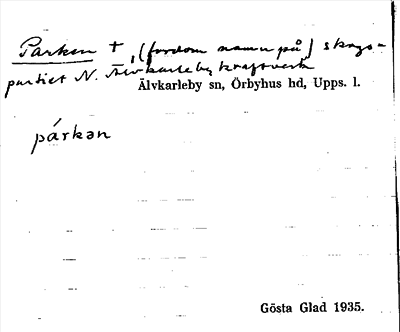 Parken +, (fordom namn på) skogs-
partiet N. Älvkarleby kraftverk
Älvkarleby sn, Örbyhus hd, Upps. l.
párkən
Gösta Glad 1935.